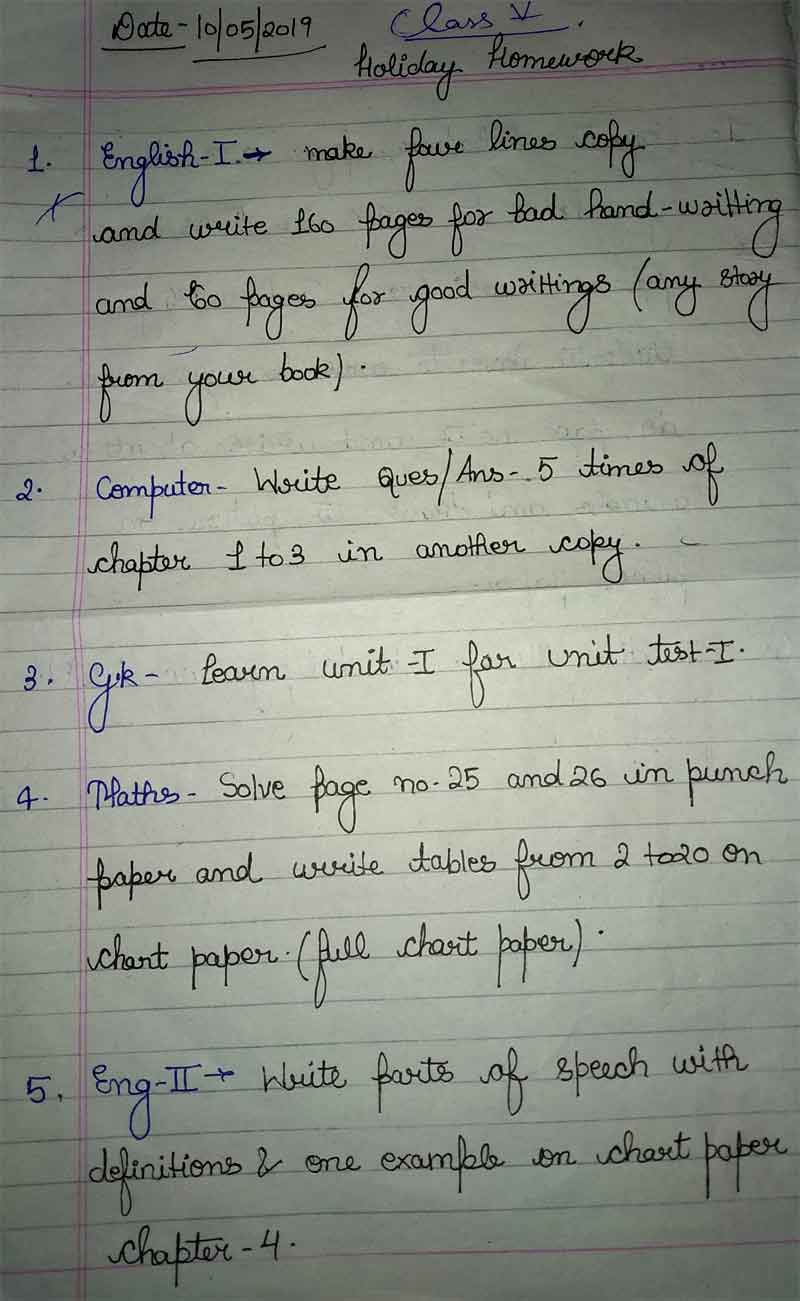 Date - 10/05/2019 Class V.
Holiday Homework
1. English-I. → make four lines copy
and write 160 pages for bad hand-writting
and 60 pages for good writtings (any story
from your book).
2. Computer - Write Ques/Ans - 5 times of
chapter 1 to 3 in another copy.
3. G.k - Learn unit -I for unit test-I.
4. Maths - Solve page no. 25 and 26 in punch
paper and write tables from 2 to 20 on
chart paper. (full chart paper).
5. Eng-II → Write parts of speech with
definitions & one example on chart paper
chapter - 4.